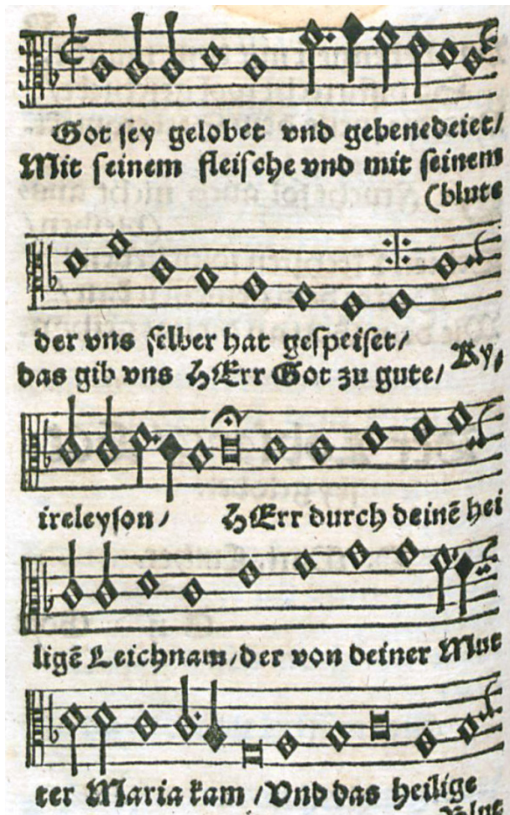 Got sey gelobet vnd gebenedeiet/
Mit seinem fleische vnd mit seinem
(blute
der vns selber hat gespeiset/
das gib vns HErr Got zu gute/ Ky,
ireleyson/ HErr durch deinē hei
ligē Leichnam/der von deiner Mut
ter Maria kam /Vnd das heilige
Blut